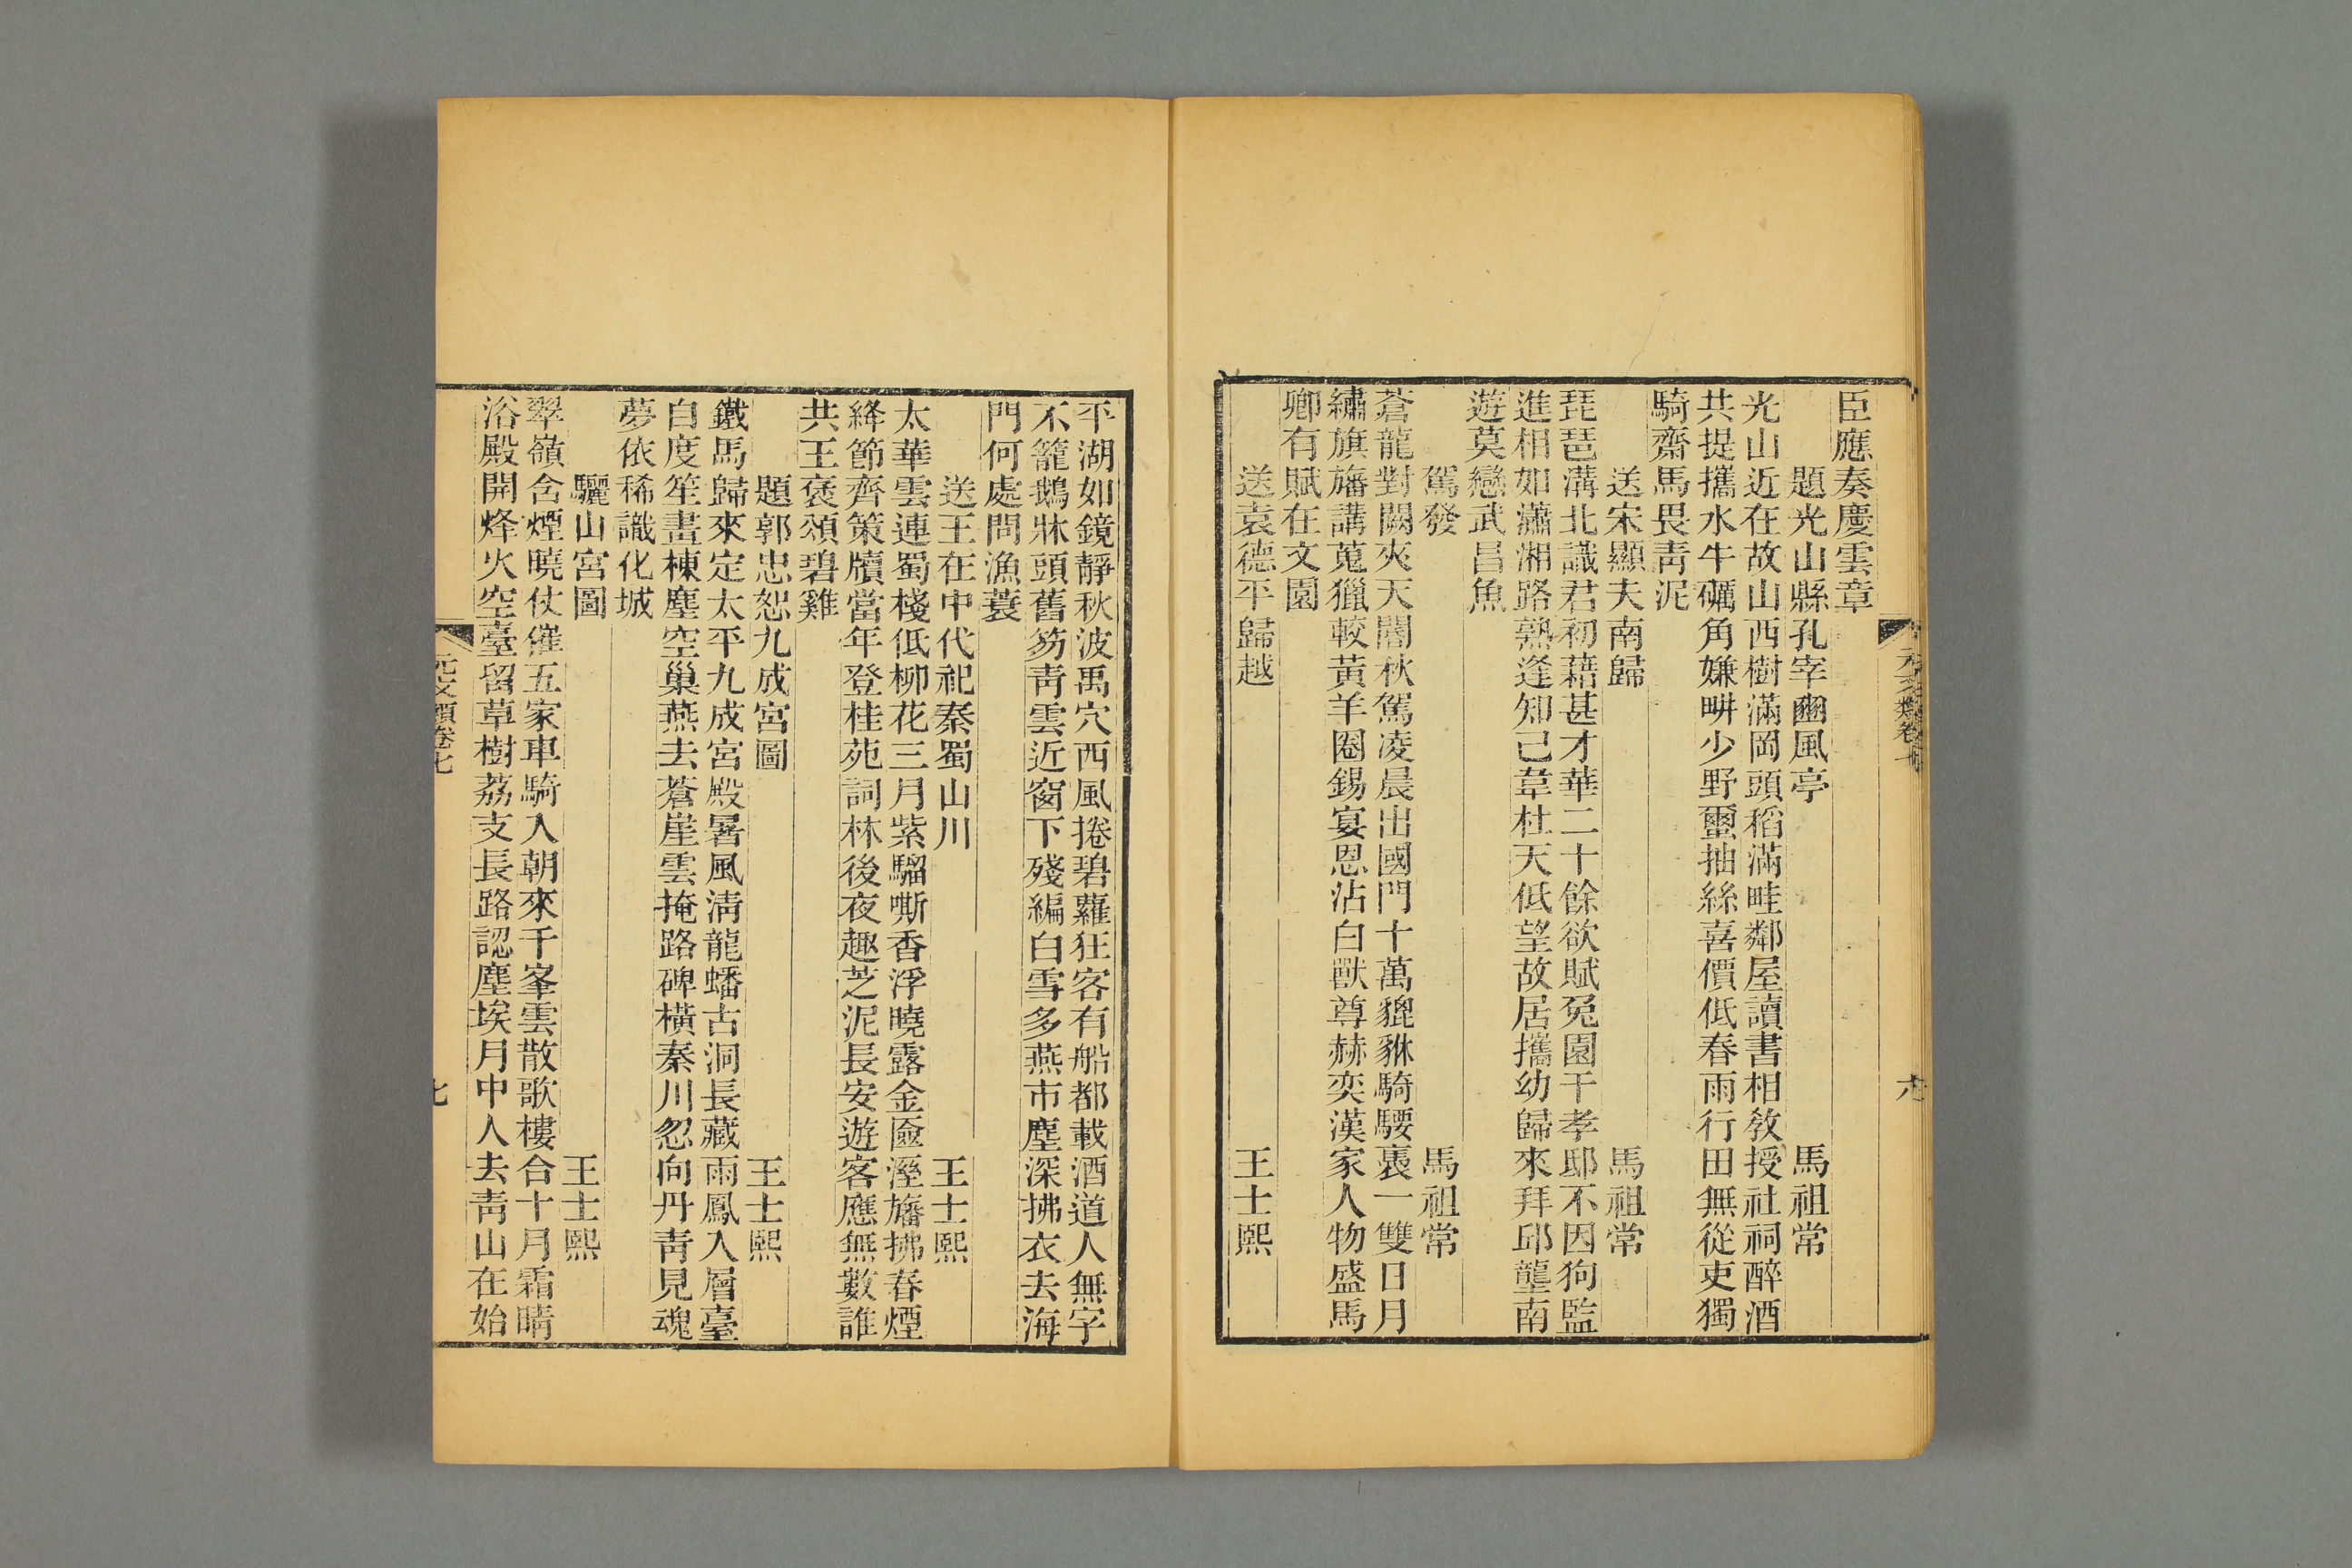 臣應奏慶雲章
題光山縣孔宰豳風亭　馬祖常
光山近在故山西樹滿岡頭稻滿畦鄰屋讀書相教授社祠醉酒
共提攜水牛礪角嫌畊少野䖝抽絲喜價低春雨行田無從吏獨
騎齋馬畏靑泥
送宋顯夫南歸　馬祖常
琵琶溝北識君初藉甚才華二十餘欲賦兔園干孝邸不因狗監
進相如瀟湘路熟逢知己韋杜天低望故居攜幼歸來拜邱壟南
遊莫戀武昌魚
駕發　馬祖常
蒼龍對闕夾天閽秋駕凌晨出國門十萬貔貅騎騕褭一雙日月
繡旗旛講蒐獵較黃羊圈錫宴恩沾白獸尊赫奕漢家人物盛馬
卿有賦在文園
送袁德平歸越　王士熙
平湖如鏡靜秋波禹穴西風捲碧蘿狂客有船都載酒道人無字
不籠鵝牀頭舊笏靑雲近窗下殘編白雪多燕市塵深拂衣去海
門何處問漁蓑
送王在中代祀秦蜀山川　王士熙
太華雲連蜀棧低柳花三月紫騮嘶香浮曉露金匳溼旛拂春煙
絳節齊策牘當年登桂苑詞林後夜趣芝泥長安遊客應無數誰
共王褒頌碧雞
題郭忠恕九成宮圖　王士熙
鐵馬歸來定太平九成宮殿暑風淸龍蟠古洞長藏雨鳳入層臺
自度笙畫棟塵空巢燕去蒼崖雲掩路碑橫秦川忽向丹靑見魂
夢依稀識化城
驪山宮圖　王士熙
翠嶺含煙曉仗催五家車騎入朝來千峯雲散歌樓合十月霜晴
浴殿開烽火空臺留草樹荔支長路認塵埃月中人去靑山在始
元文類卷七
七